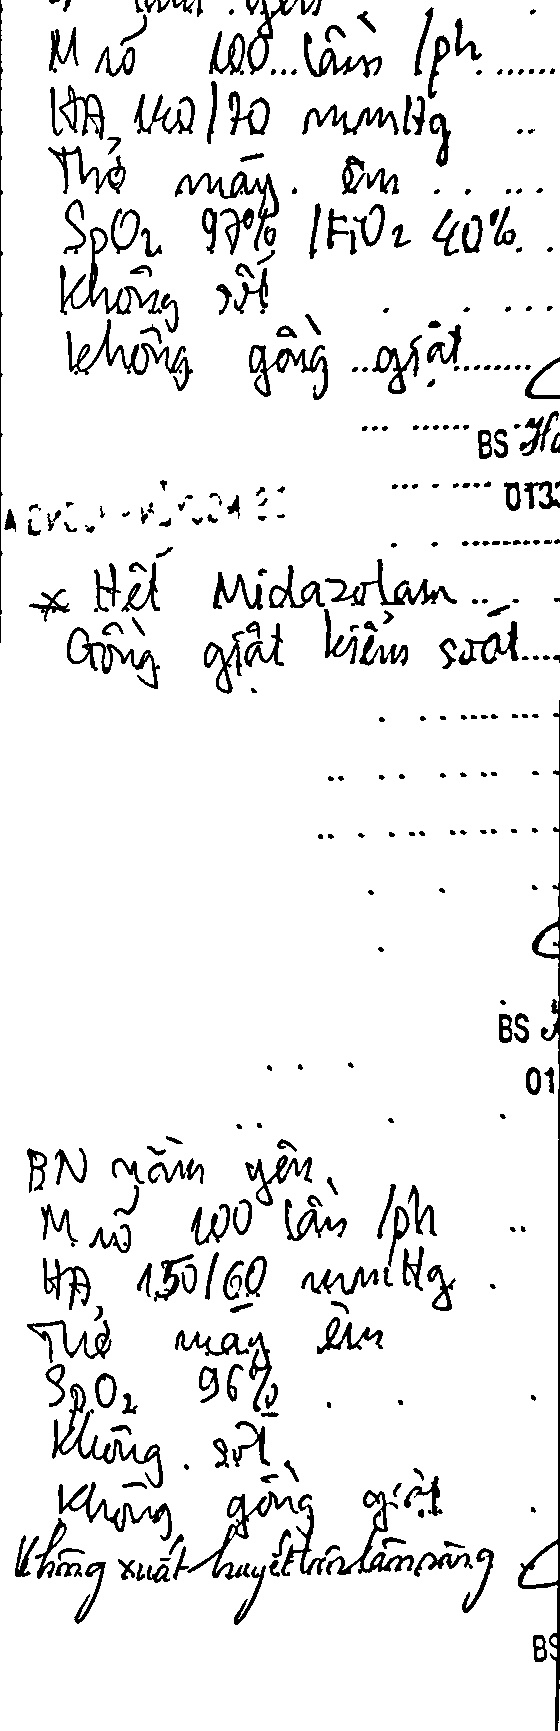 nằm yên
M rõ 100 lần /ph
HA 140/70 mmHg
Thở máy êm
SpO2 97% /FiO2 40%
Không sốt
Không gồng giật
BS
013
* Hết Midazolam
Gồng giật kiểm soát
BS
01
BN nằm yên
M rõ 100 lần /ph
HA 150/60 mmHg
Thở máy êm
SpO2 96%
Không sốt
Không gồng giật
Không xuất huyết trên lâm sàng
BS